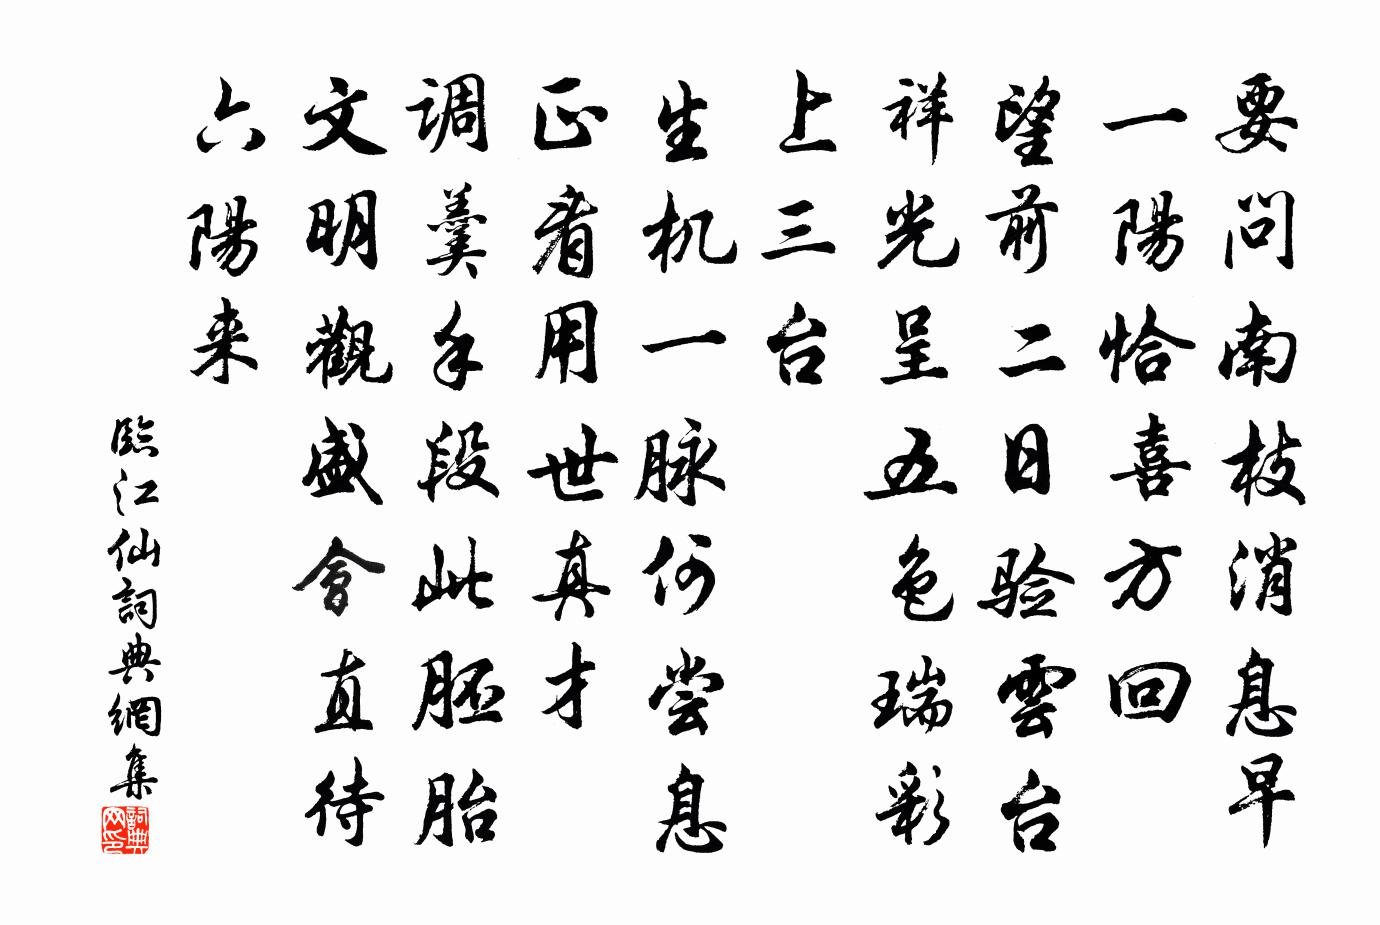 要问南枝消息早
一陽恰喜方回
望前二日验雲台
祥光呈五色瑞彩
上三台
生机一脉何尝息
正看用世真才
调羹手段此胚胎
文明觀盛會直待
六陽来
臨江仙詞典網集
詞典
网印